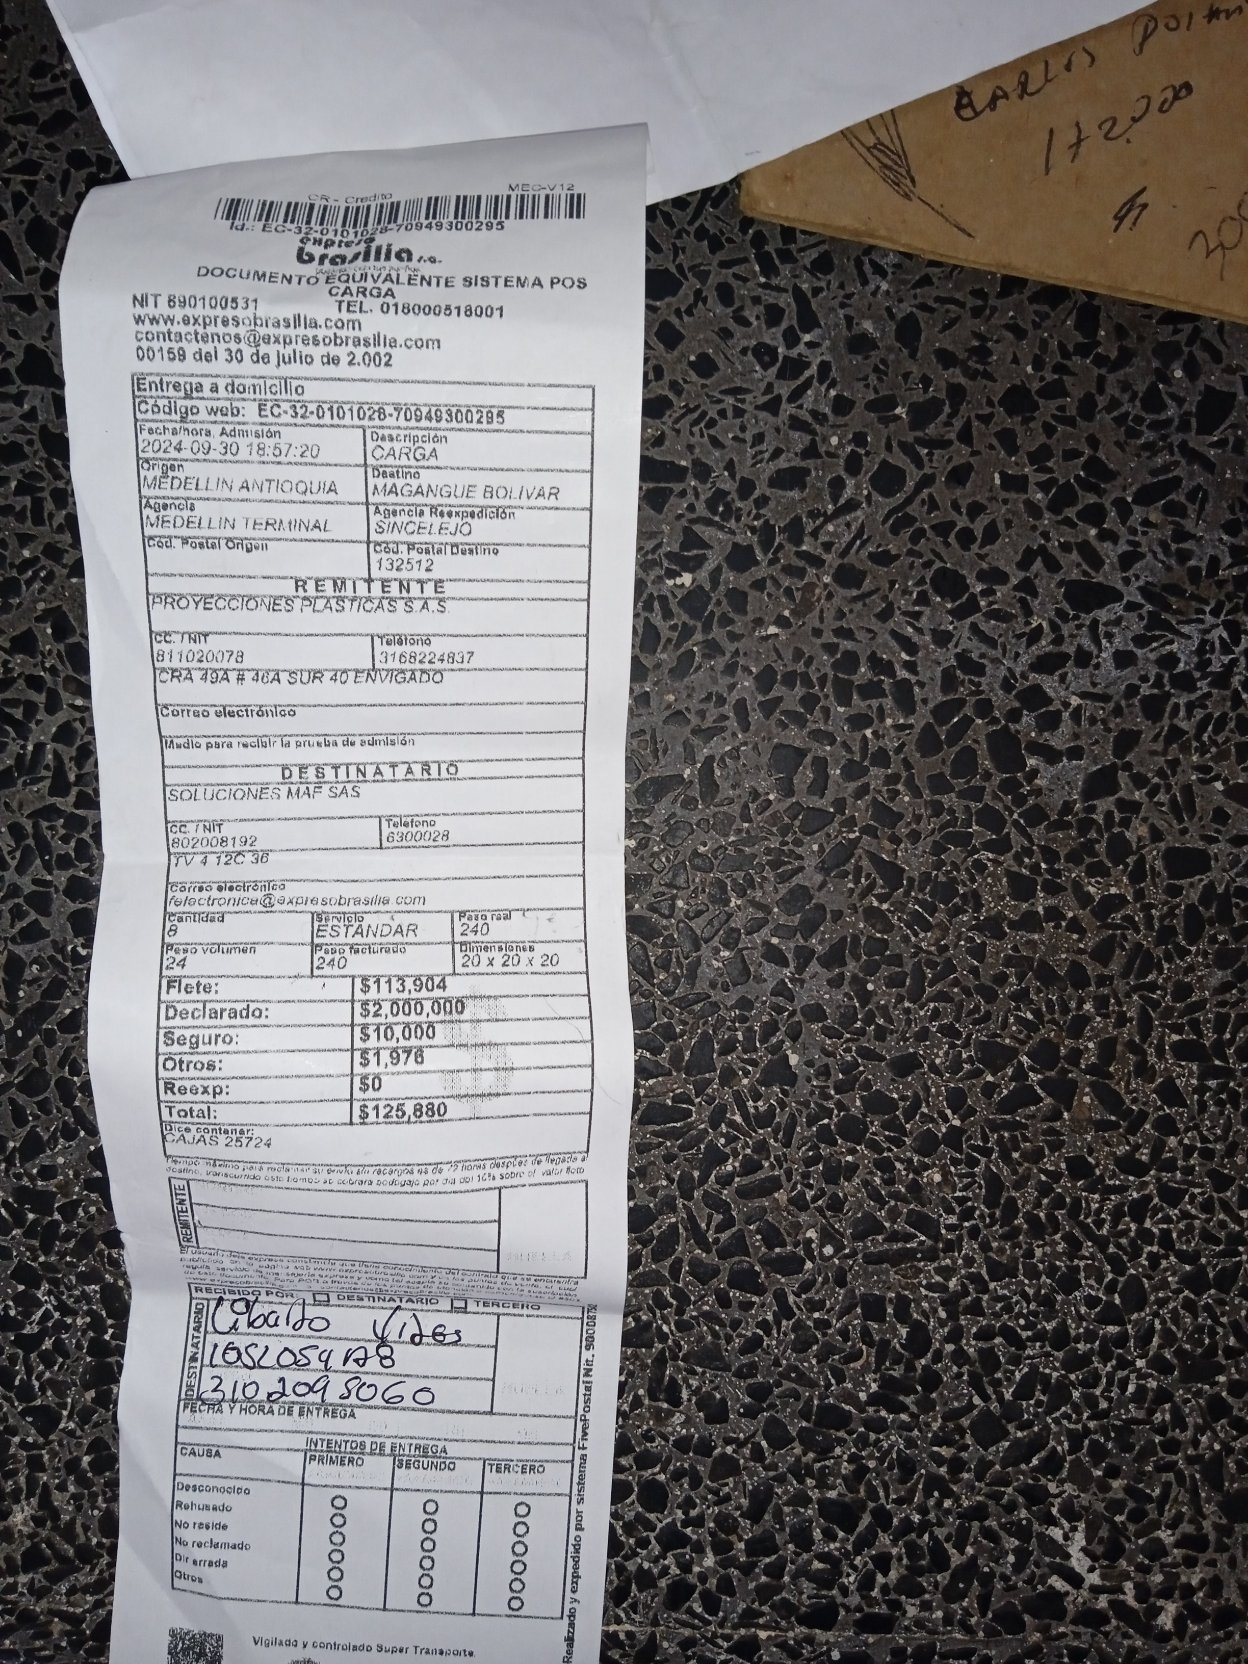 CARLOS
172.000
$
300
MEC-V12
CR - Credito
Id.: EC-32-0101028-70949300295
expreso
brasilia s.a.
DOCUMENTO EQUIVALENTE SISTEMA POS
CARGA
NIT 890100531 TEL. 018000518001
www.expresobrasilia.com
contactenos@expresobrasilia.com
00159 del 30 de julio de 2.002
Entrega a domicilio
Código web: EC-32-0101028-70949300295
Fecha/hora, Admisión Descripción
2024-09-30 18:57:20 CARGA
Origen Destino
MEDELLIN ANTIOQUIA MAGANGUE BOLIVAR
Agencia Agencia Reexpedición
MEDELLIN TERMINAL SINCELEJO
Cod. Postal Origen Cód. Postal Destino
132512
REMITENTE
PROYECCIONES PLASTICAS S.A.S.
CC. / NIT Teléfono
811020078 3168224837
CRA 49A # 46A SUR 40 ENVIGADO
Correo electrónico
Medio para recibir la prueba de admisión
DESTINATARIO
SOLUCIONES MAF SAS
CC. / NIT Telefono
802008192 6300028
TV 4 12C 36
Correo electrónico
felectronica@expresobrasilia.com
Cantidad Servicio Peso real
8 ESTANDAR 240
Peso volumen Peso facturado Dimensiones
24 240 20 x 20 x 20
Flete: $113,904
Declarado: $2,000,000
Seguro: $10,000
Otros: $1,976
Reexp: $0
Total: $125,880
Dice contener:
CAJAS 25724
Tiempo máximo para reclamar su envío sin recargos es de 72 horas después de llegada a
destino, transcurrido este tiempo se cobrara bodegaje por dia del 10% sobre el valor flete
REMITENTE
RECIBIDO POR: DESTINATARIO TERCERO
DESTINATARIO
Libardo Vides
310 209 8060
FECHA Y HORA DE ENTREGA
INTENTOS DE ENTREGA
CAUSA PRIMERO SEGUNDO TERCERO
Desconocido
Rehusado
No reside
No reclamado
Dir errada
Otros
Realizado y expedido por sistema FivePostal Nit.
Vigilado y controlado Super Transporte.